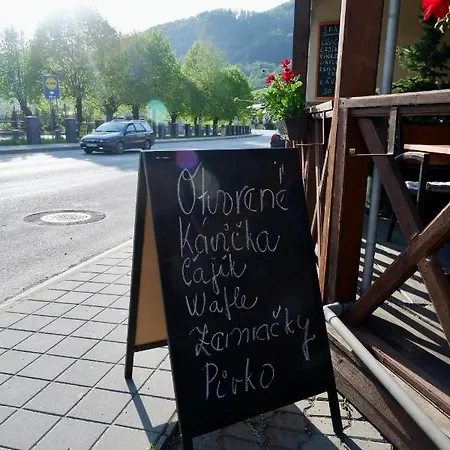 Otvorené
Kavička
Čajík
Wafle
Zemiačky
Pivko